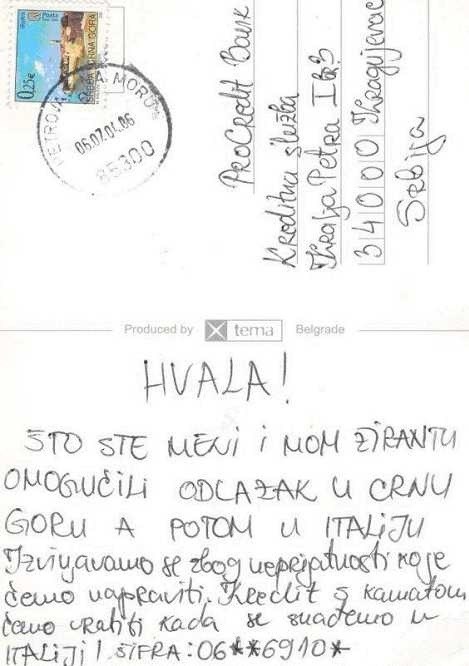 Pošta
0,25€
CRNA GORA
PETROVAC NA MORU
06.07.04.06
85300
ProCredit Bank
Kreditna služba
Kralja Petra I br 3
34000 Kragujevac
Srbija
Produced by tema Belgrade
HVALA!
ŠTO STE MENI I MOM ŽIRANTU
OMOGUĆILI ODLAZAK U CRNU
GORU A POTOM U ITALIJU
Izvinjavamo se zbog neprijatnosti koje
ćemo napraviti. Kredit s kamatom
ćemo vratiti kada se snađemo u
ITALIJI! ŠIFRA: 06**6910*